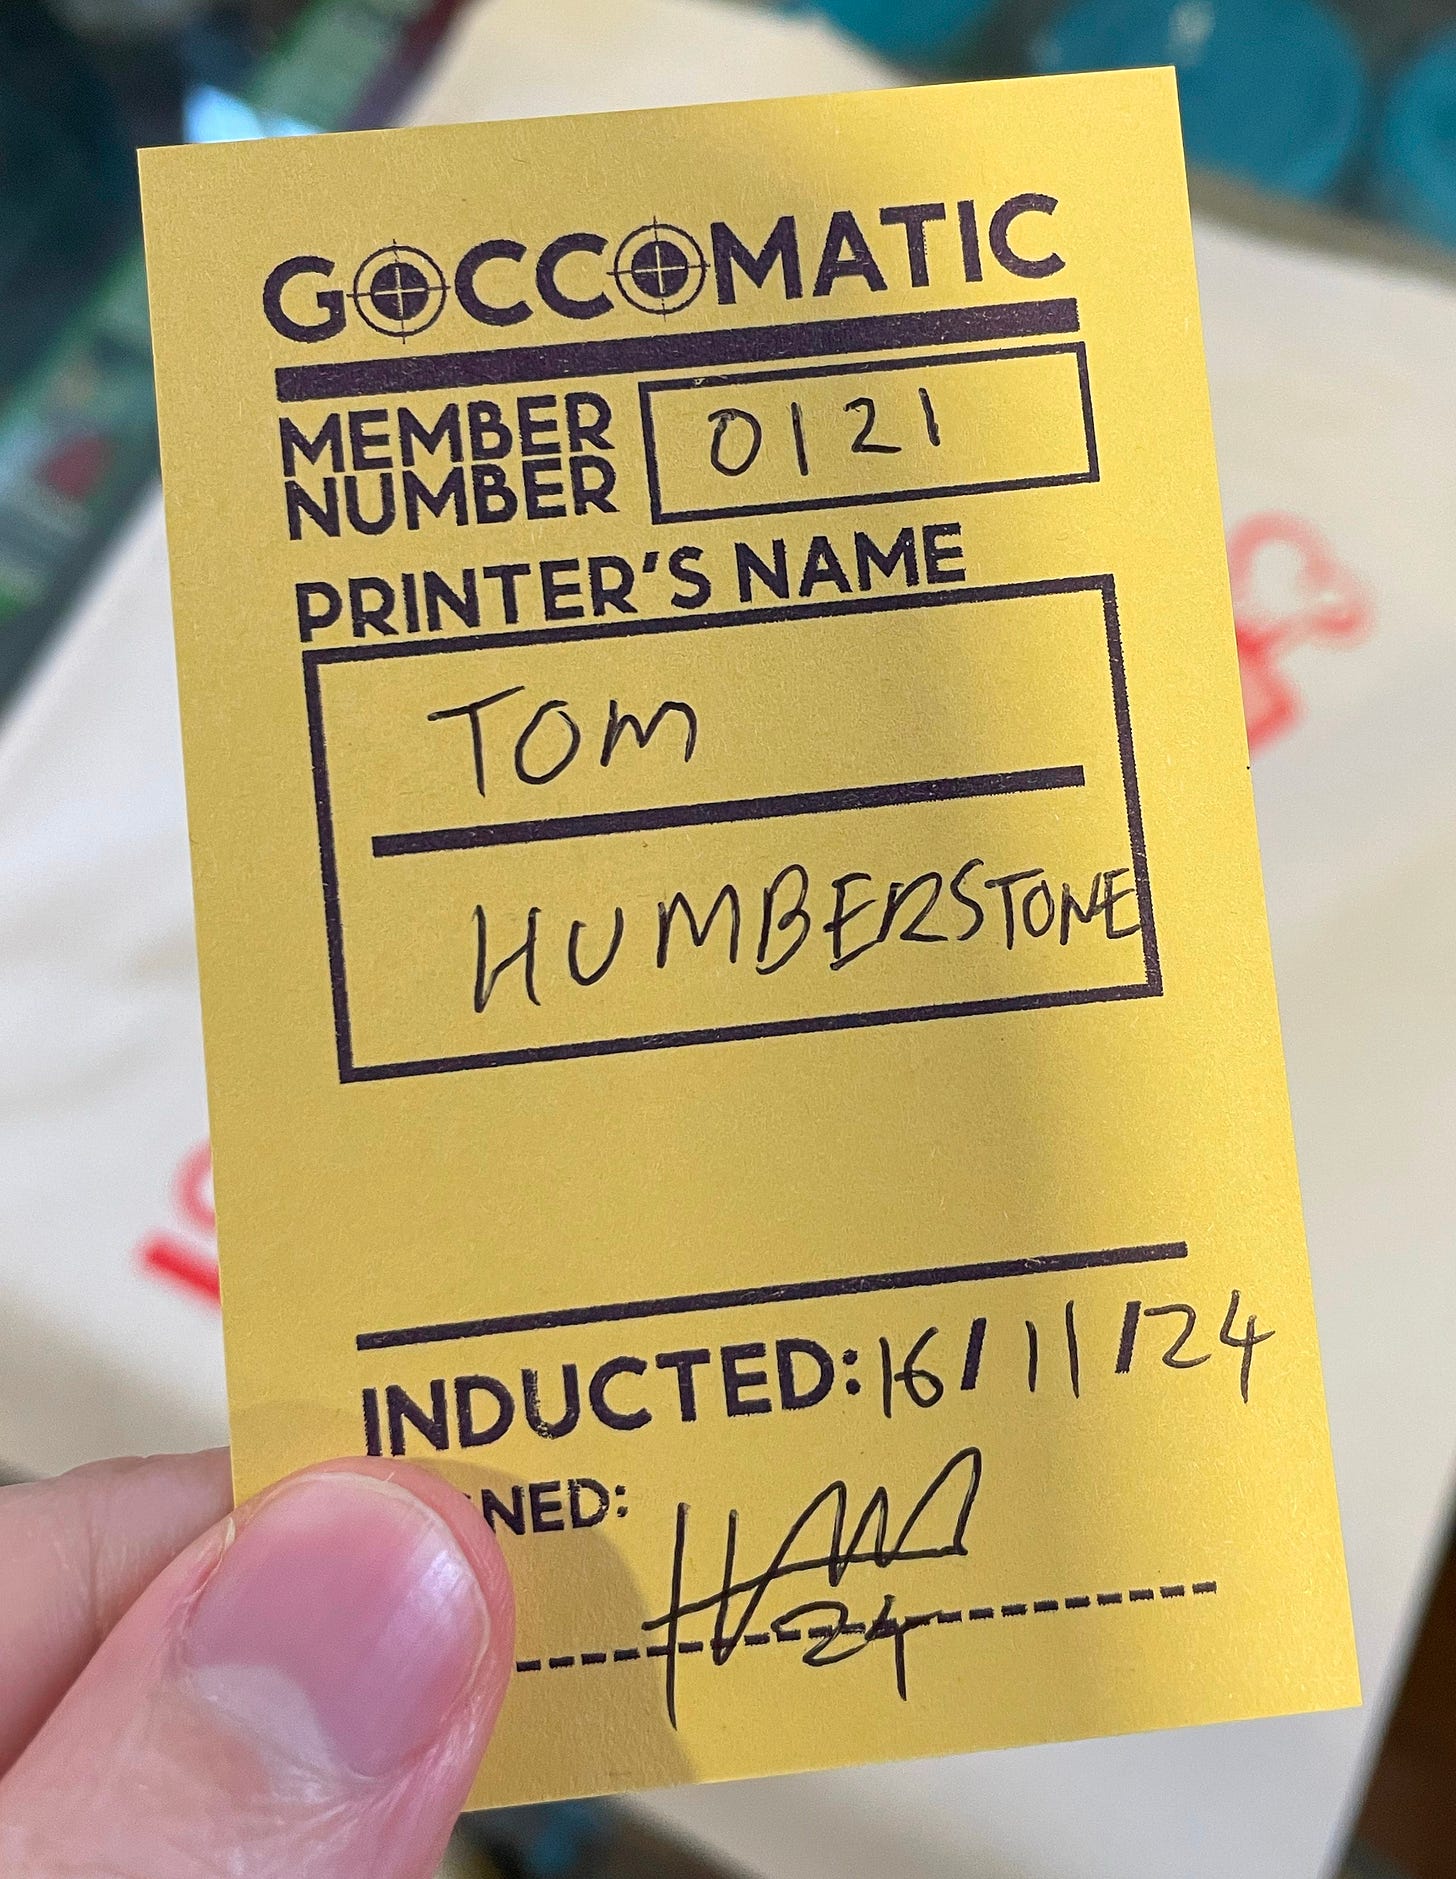 GOCCOMATIC
MEMBER NUMBER 0121
PRINTER'S NAME
TOM
HUMBERSTONE
INDUCTED: 16/11/24
NED:
24